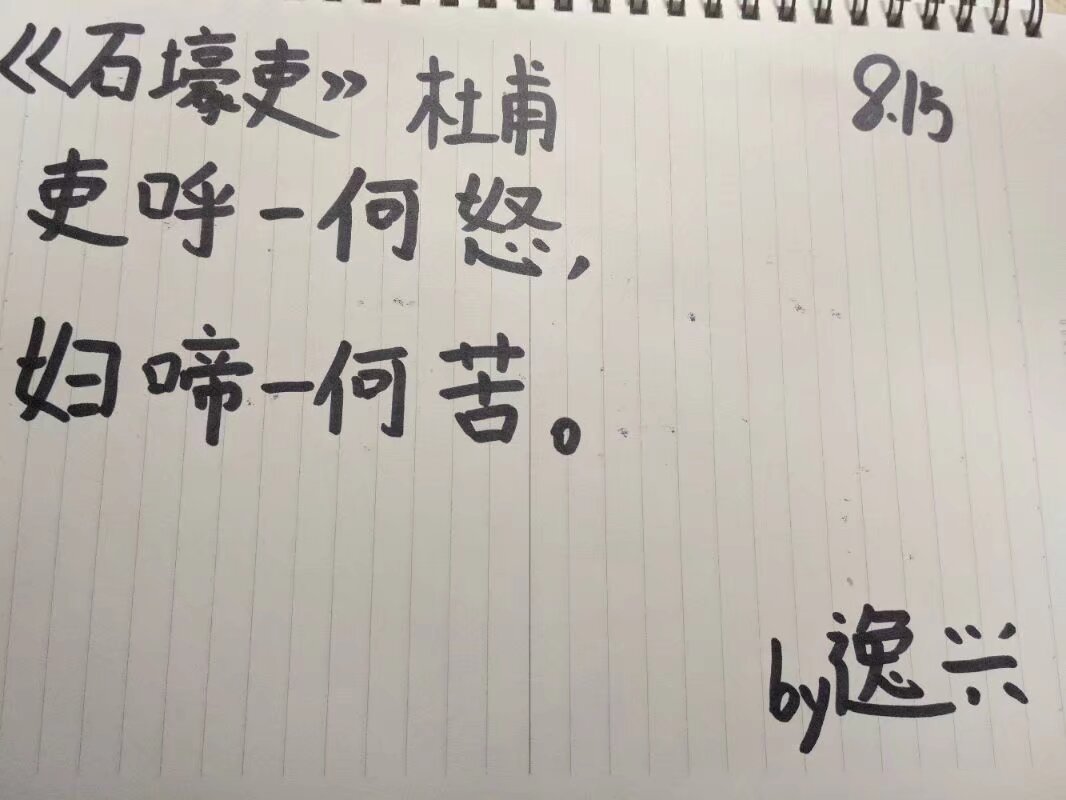 《石壕吏》 杜甫 8.15
吏呼一何怒,
妇啼一何苦。
by逸兴